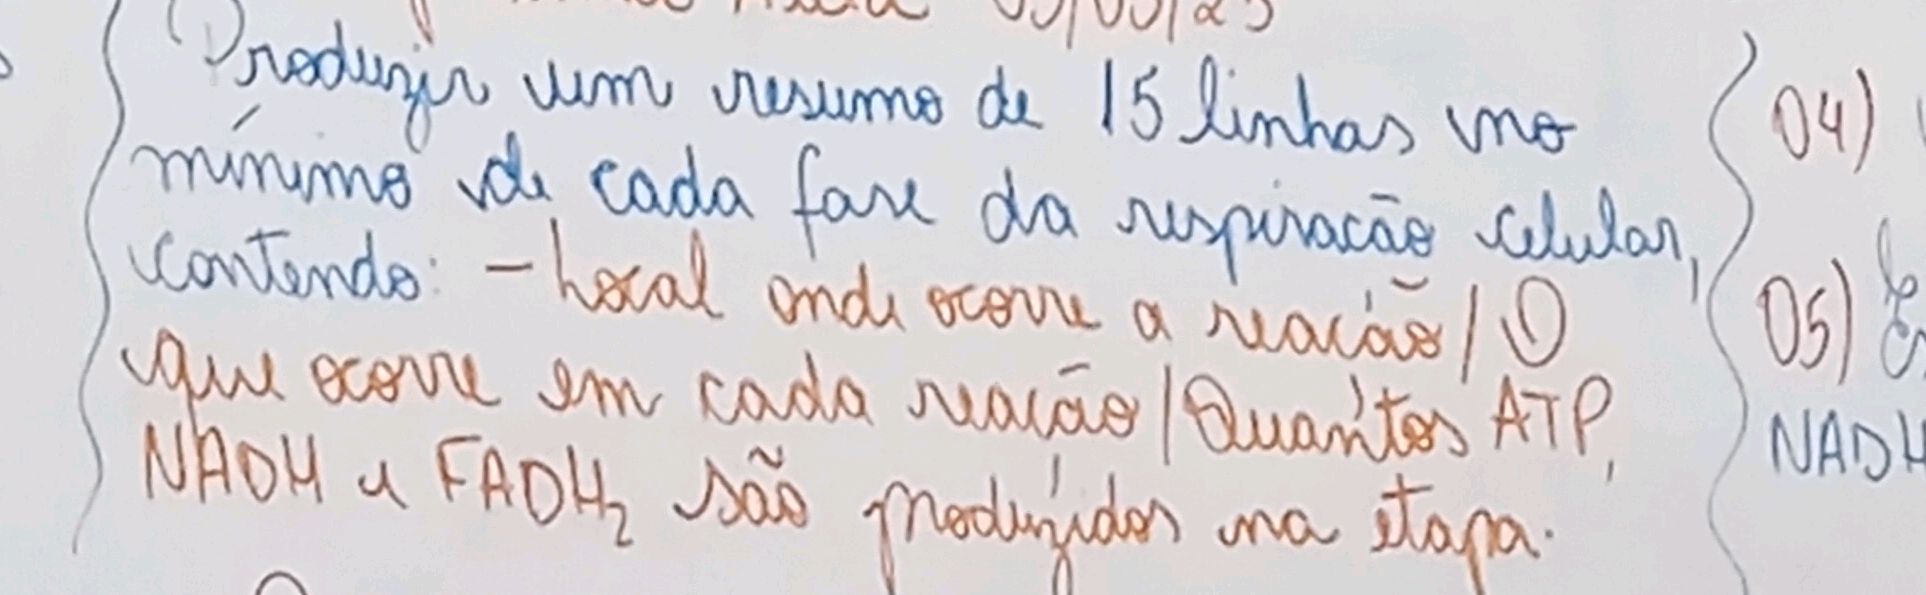 03/03/23
Produzir um resumo de 15 linhas no
04)
mínimo de cada fase da respiração celular,
contendo: - Local onde ocorre a reação / O
05)
que ocorre em cada reação / Quantos ATP,
NADH
NADH e FADH₂ são produzidos na etapa.